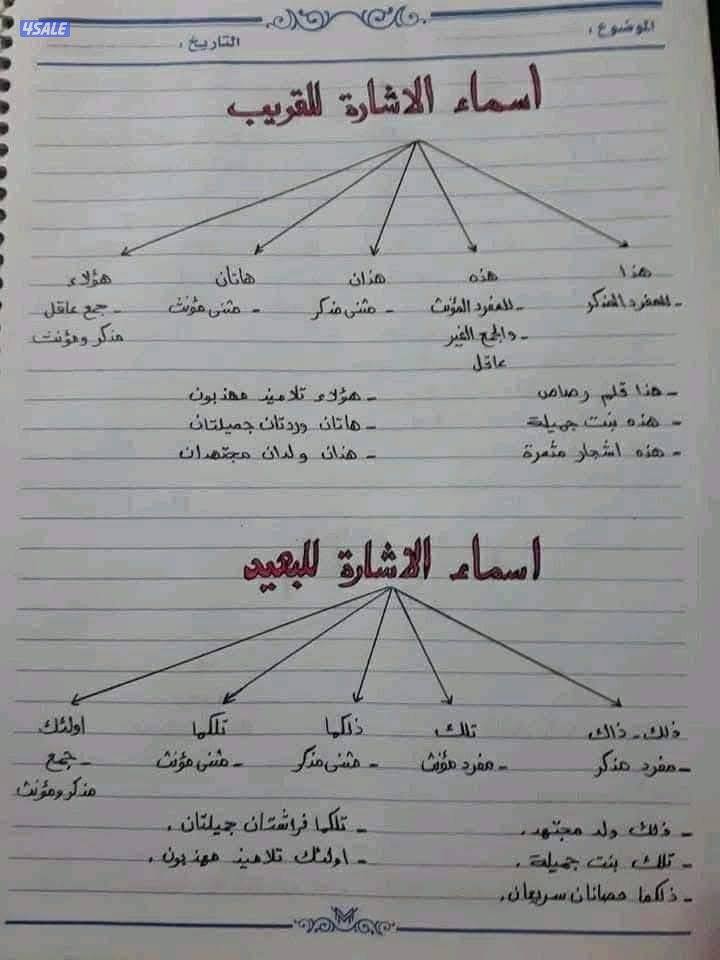 4SALE
الموضوع :
التاريخ :
اسماء الاشارة للقريب
هذا هذه هذان هاتان هؤلاء
- للمفرد المذكر - للمفرد المؤنث - مثنى مذكر - مثنى مؤنث - جمع عاقل
- والجمع الغير مذكر ومؤنث
عاقل
- هذا قلم رصاص - هؤلاء تلاميذ مهذبون
- هذه بنت جميلة - هاتان وردتان جميلتان
- هذه اشجار مثمرة - هذان ولدان مجتهدان
اسماء الاشارة للبعيد
ذلك - ذاك تلك ذلكما تلكما اولئك
- مفرد مذكر - مفرد مؤنث - مثنى مذكر - مثنى مؤنث - جمع
مذكر ومؤنث
- ذلك ولد مجتهد . - تلكما فراشتان جميلتان .
- تلك بنت جميلة . - اولئك تلاميذ مهذبون .
- ذلكما حصانان سريعان .